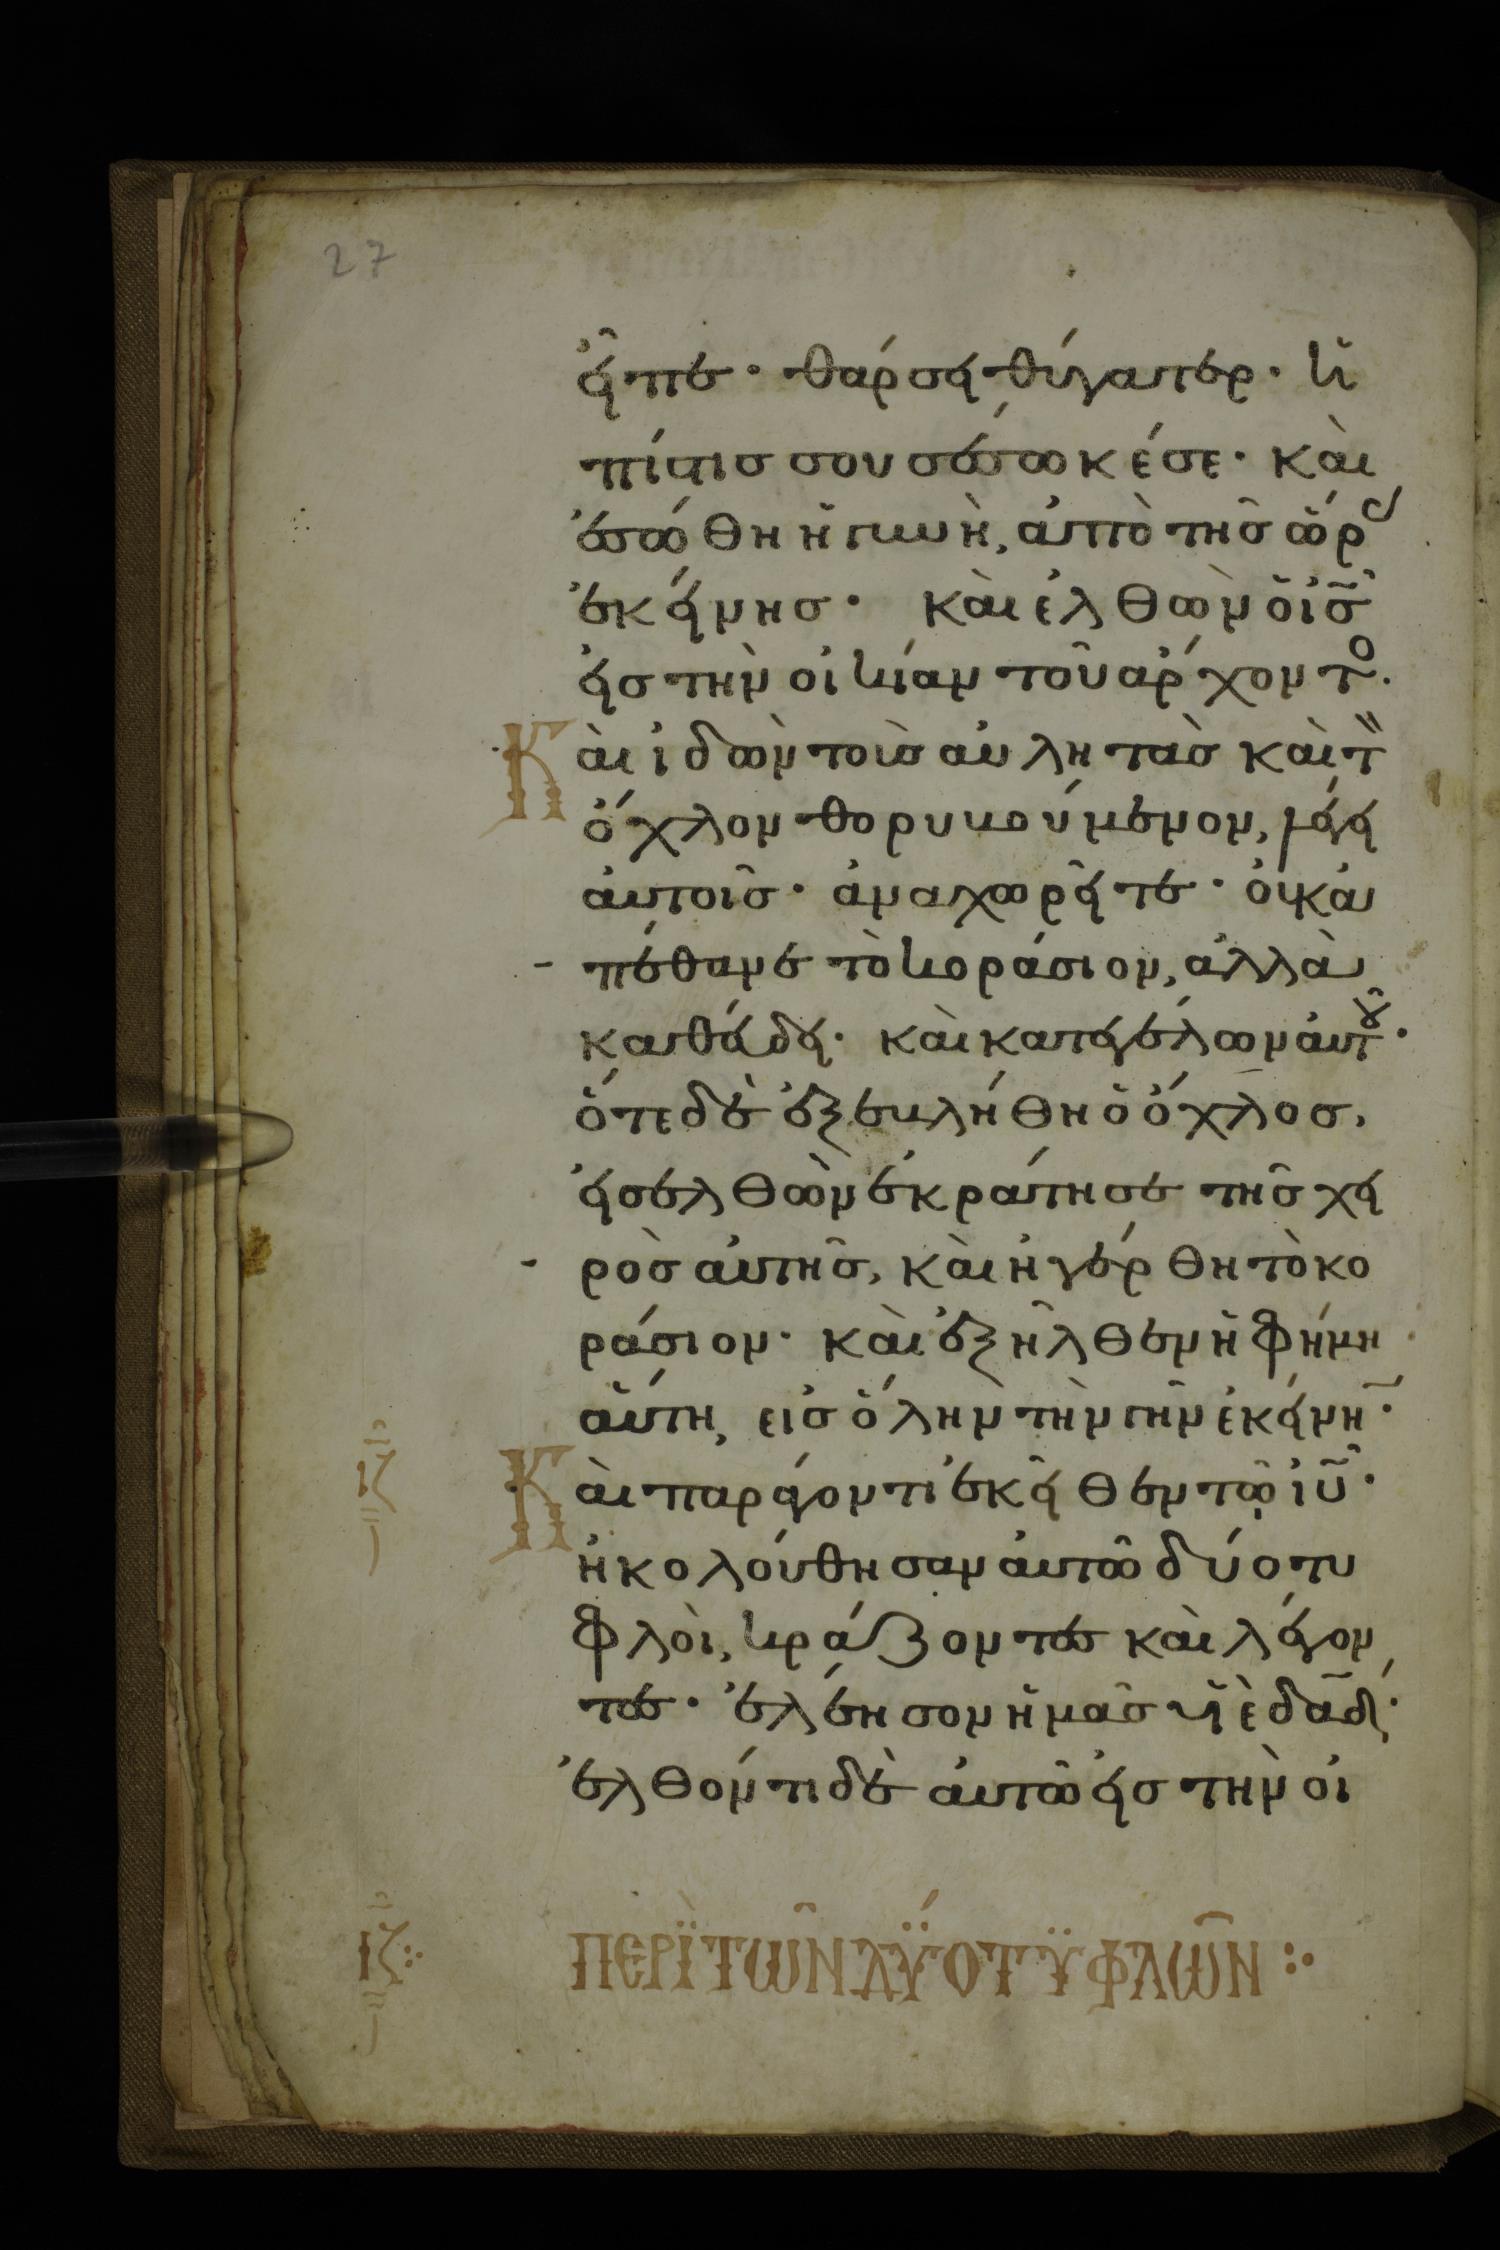 27
εἶπε· θάρσει θύγατερ· ἡ
πίστις σου σέσωκέ σε· καὶ
ἐσώθη ἡ γυνὴ, ἀπὸ τῆς ὥρ
ἐκείνης· καὶ ἐλθὼν ὁ ι̅ς̅
εἰς τὴν οἰκίαν τοῦ ἄρχοντο.
Καὶ ἰδὼν τοὺς αὐλητὰς καὶ τ
ὄχλον θορυβούμενον, λέγει
αὐτοῖς· ἀναχωρεῖτε· οὐκ ἀ
πέθανε τὸ κοράσιον, ἀλλὰ
καθεύδει· καὶ κατεγέλων αὐτοῦ·
ὅτε δὲ ἐξεβλήθη ὁ ὄχλος,
εἰσελθὼν ἐκράτησε τῆς χει
ρὸς αὐτῆς, καὶ ἠγέρθη τὸ κο
ράσιον· καὶ ἐξῆλθεν ἡ φήμη
αὕτη, εἰς ὅλην τὴν γῆν ἐκείνη·
ιζ
Καὶ παράγοντι ἐκεῖθεν τῷ ι̅υ̅·
ἠκολούθησαν αὐτῶ δύο τυ
φλοὶ, κράζοντες καὶ λέγον
τες· ἐλέησον ἡμᾶς υἱὲ δα̅δ̅·
ἐλθόντι δὲ αὐτῶ εἰς τὴν οἰ
ιζ:· ΠΕΡῚ ΤΩ͂Ν ΔΎΟ ΤΥΦΛΩ͂Ν :·